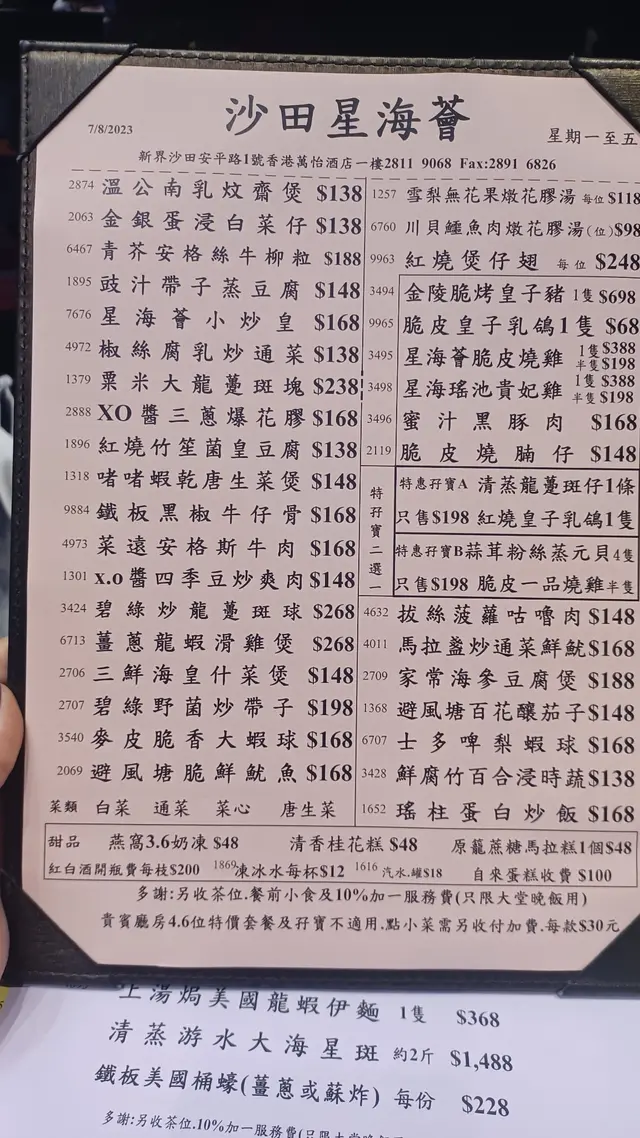 沙田星海薈
7/8/2023
星期一至五
新界沙田安平路1號香港萬怡酒店一樓2811 9068 Fax:2891 6826
2874 溫公南乳炆齋煲 $138
2063 金銀蛋浸白菜仔 $138
6467 青芥安格絲牛柳粒 $188
1895 豉汁帶子蒸豆腐 $148
7676 星海薈小炒皇 $168
4972 椒絲腐乳炒通菜 $138
1379 粟米大龍躉斑塊 $238
2888 XO醬三蔥爆花膠 $168
1896 紅燒竹笙菌皇豆腐 $138
1318 啫啫蝦乾唐生菜煲 $148
9884 鐵板黑椒牛仔骨 $168
4973 菜遠安格斯牛肉 $168
1301 x.o醬四季豆炒爽肉 $148
3424 碧綠炒龍躉斑球 $268
6713 薑蔥龍蝦滑雞煲 $268
2706 三鮮海皇什菜煲 $148
2707 碧綠野菌炒帶子 $198
3540 麥皮脆香大蝦球 $168
2069 避風塘脆鮮魷魚 $168
菜類 白菜 通菜 菜心 唐生菜
1257 雪梨無花果燉花膠湯 每位 $118
6760 川貝鱷魚肉燉花膠湯(位) $98
9963 紅燒煲仔翅 每位 $248
3494 金陵脆烤皇子豬 1隻 $698
9965 脆皮皇子乳鴿1隻 $68
3495 星海薈脆皮燒雞 1隻 $388 半隻 $198
3498 星海瑤池貴妃雞 1隻 $388 半隻 $198
3496 蜜汁黑豚肉 $168
2119 脆皮燒腩仔 $148
特孖寶二選一
特惠孖寶A 清蒸龍躉斑仔1條
只售$198 紅燒皇子乳鴿1隻
特惠孖寶B 蒜茸粉絲蒸元貝4隻
只售$198 脆皮一品燒雞半隻
4632 拔絲菠蘿咕嚕肉 $148
4011 馬拉盞炒通菜鮮魷 $168
2709 家常海參豆腐煲 $188
1368 避風塘百花釀茄子 $148
6707 士多啤梨蝦球 $168
3428 鮮腐竹百合浸時蔬 $138
1652 瑤柱蛋白炒飯 $168
甜品 燕窩3.6奶凍 $48 清香桂花糕 $48 原籠蔗糖馬拉糕1個$48
紅白酒開瓶費每枝$200 1869凍冰水每杯$12 1616 汽水.罐$18 自來蛋糕收費 $100
多謝:另收茶位.餐前小食及10%加一服務費(只限大堂晚飯用)
貴賓廳房4.6位特價套餐及孖寶不適用.點小菜需另收付加費.每款$30元
上湯焗美國龍蝦伊麵 1隻 $368
清蒸游水大海星斑 約2斤 $1,488
鐵板美國桶蠔(薑蔥或蘇炸) 每份 $228
多謝:另收茶位.10%加一服務費(只限大堂晚